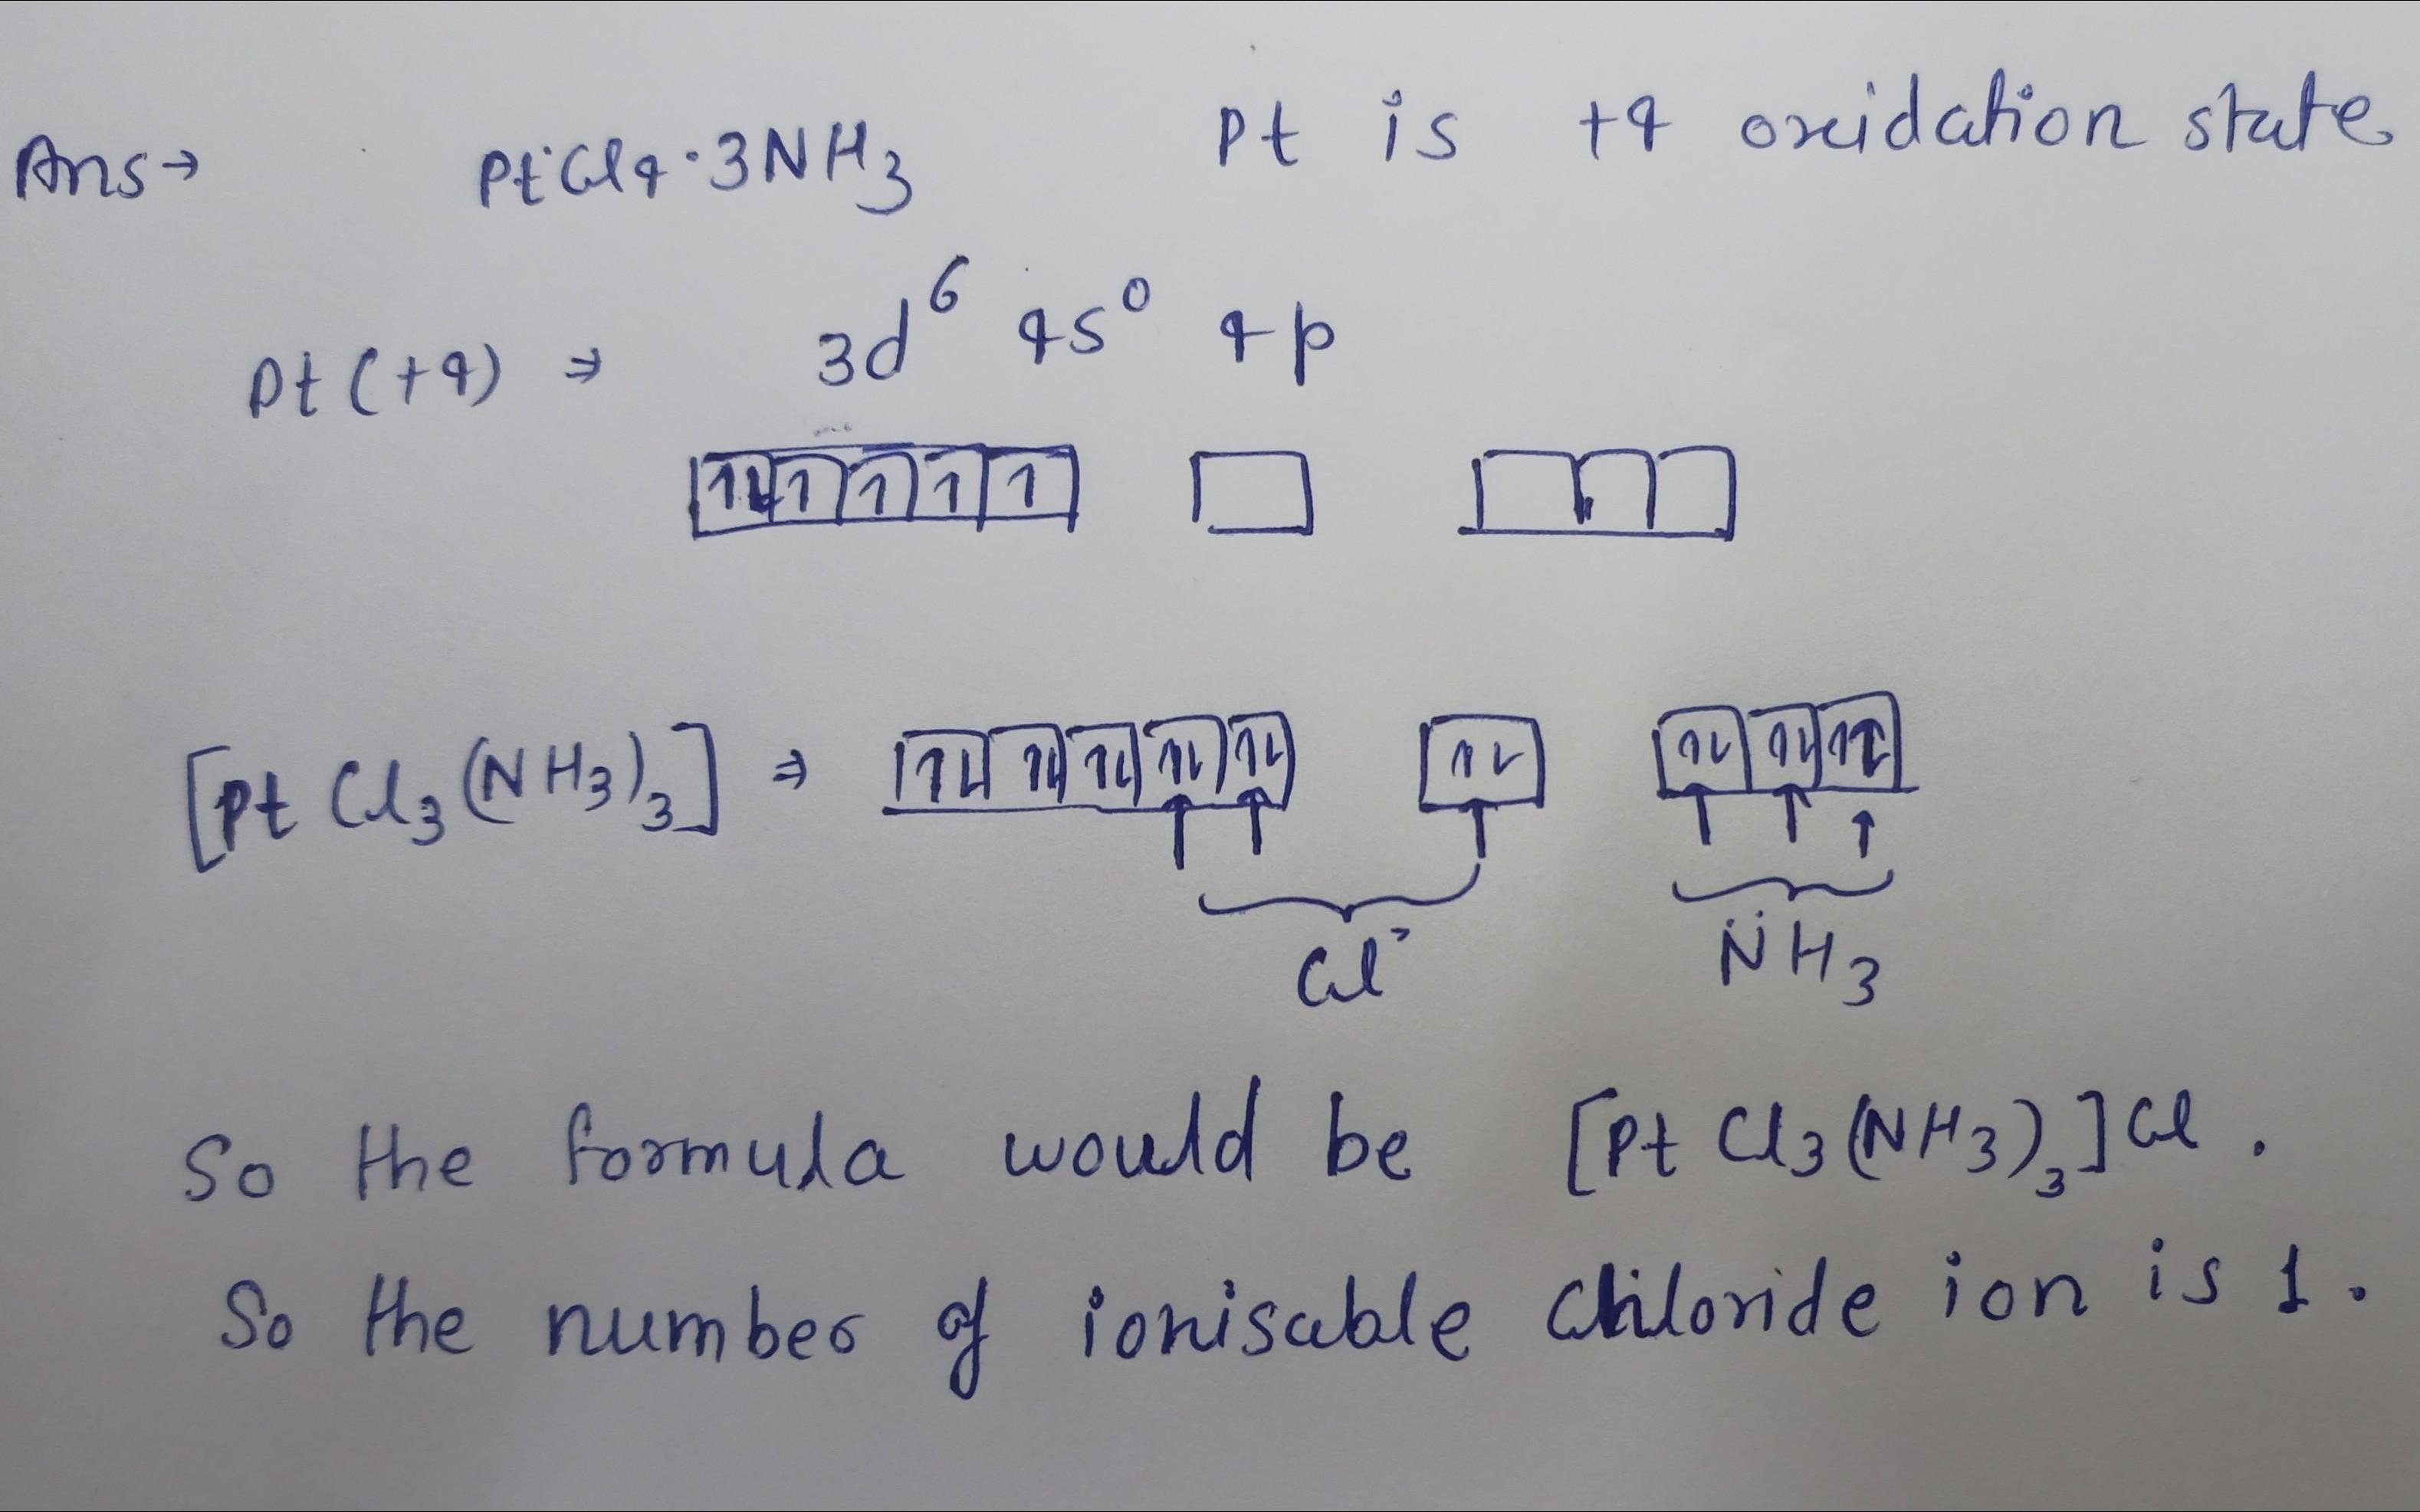 Ans→ PtCl4·3NH3 Pt is +4 oxidation state
Pt(+4) ⇒ 3d⁶ 4s⁰ 4p
[PtCl3(NH3)3] ⇒
Cl⁻ N̈H3
So the formula would be [PtCl3(NH3)3]Cl.
So the number of ionisable chloride ion is 1.